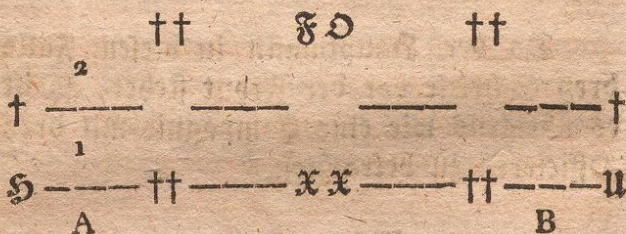 †† F O ††
2
† ——— ——— ——— ——— †
1
H ——— †† ——— X X ——— †† ——— U
A B